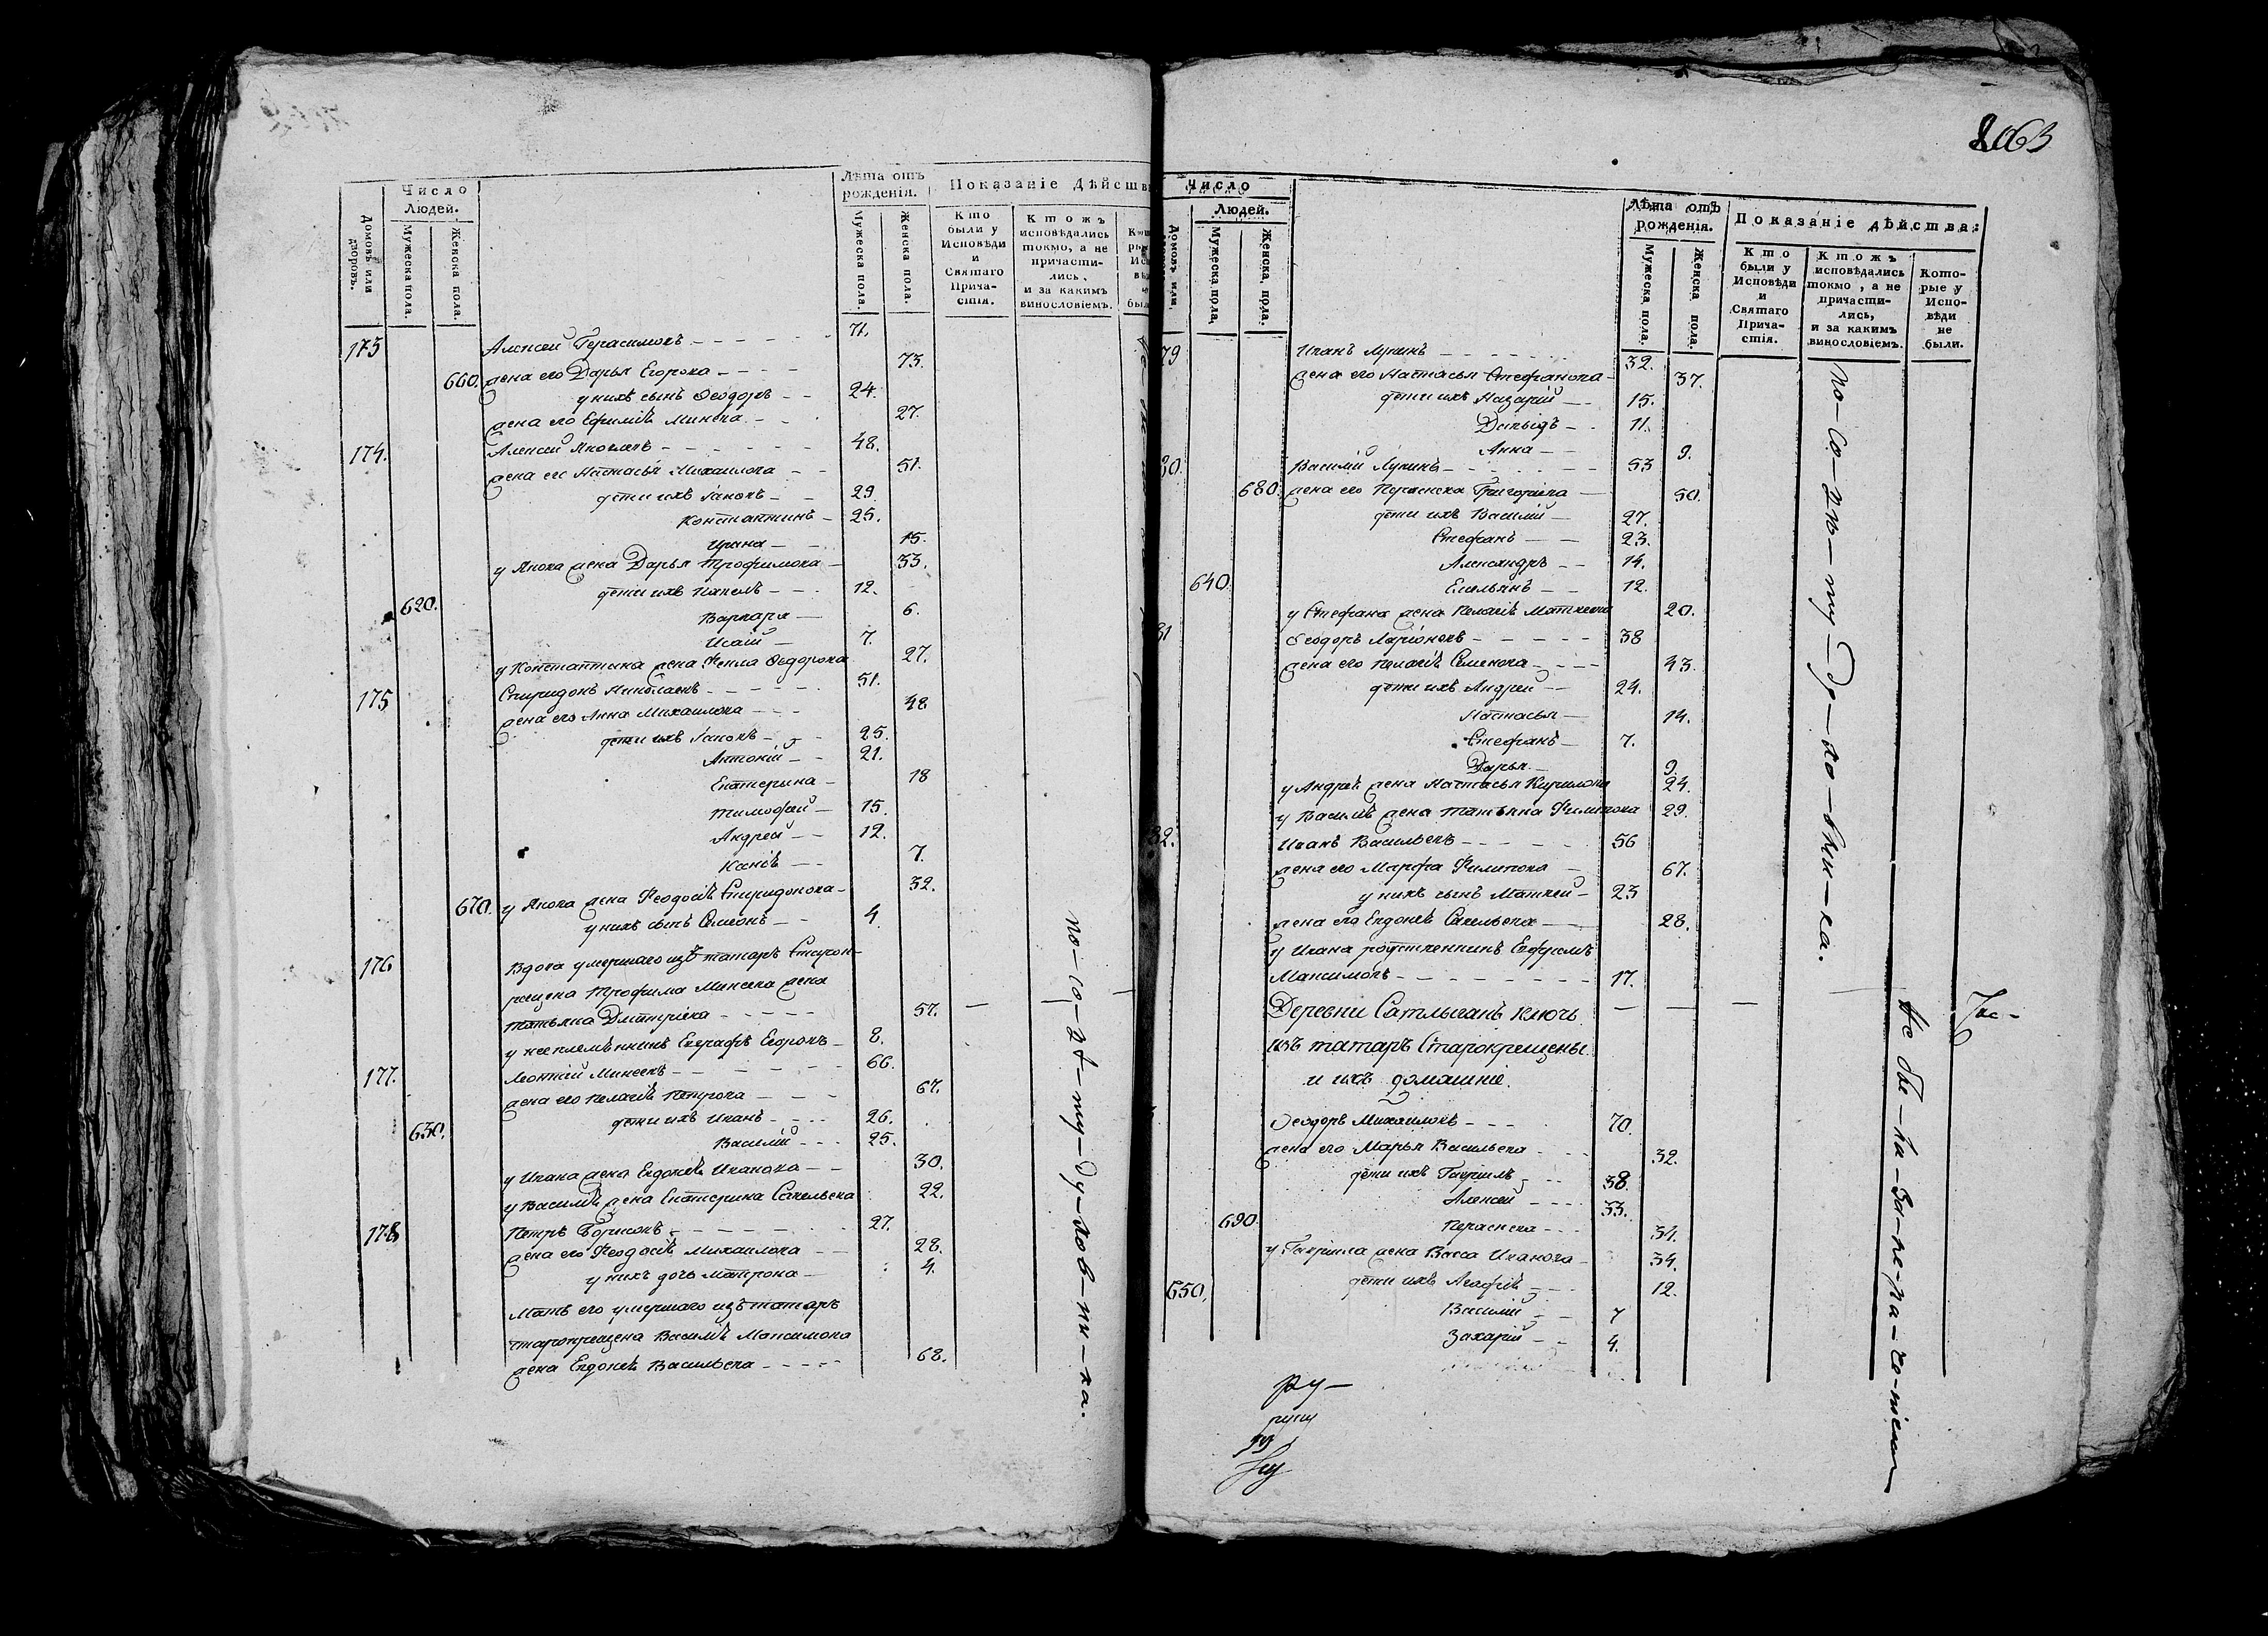 Число
Людей.
Домовъ или дворовъ.
Мужеска пола.
Женска пола.
Лѣта отъ
рожденія.
Мужеска пола.
Женска пола.
Показаніе Дѣйств
Кто
были у
Исповѣди
и
Святаго
Прича-
стія.
Ктожъ
исповѣдались
токмо, а не
причасти-
лись,
и за какимъ
винословіемъ.
173 Алексей Герасимовъ 71.
660. жена его Дарья Егорова 73.
у нихъ сынъ Ѳеодоръ 24.
жена его Ефимія Минеева 27.
174. Алексей Яковлевъ 48.
жена ег Настасья Михаилова 51.
дети ихъ Іаковъ 29.
Константинъ 25.
Ирина 15.
у Якова жена Дарья Трофимова 33.
дети ихъ Павелъ 12.
620. Варвара 6.
Исаій 7.
у Константина жена Фекла Ѳедорова 27.
175 Спиридонъ Николаевъ 51.
жена его Анна Михаилова 48
дети ихъ Іаковъ 25.
Антоній 21.
Екатерина 18
Тимофей 15.
Андрей 12.
7.
670. у Якова жена Феодосія Спиридонова 32.
у нихъ сынъ Симеонъ 4.
176 Вдова умершаго изъ татаръ Старок-
рещена Трофима Минеева жена
Татьяна Дмитріева 57.
у нее племянникъ Евграфъ Егоровъ 8.
177. Леонтій Минеевъ 66.
жена его Пелагія Петрова 67.
дети ихъ Иванъ 26.
630. Василій 25.
у Ивана жена Евдокія Иванова 30.
у Василія жена Екатерина Савельева 22.
178 Петръ Борисовъ 27.
жена его Феодосія Михаилова 28.
у нихъ дочь Матрона 4.
Мать его умершаго изъ татаръ
старокрещена Василія Максимова
жена Евдокія Васильева 68.
по-со-вѣ-ту-ду-хов-ни-ка.
2063
Число
Людей.
Домовъ или
Мужеска пола.
Женска пола.
Лѣта отъ
рожденія.
Мужеска пола.
Женска пола.
Показаніе дѣйства:
Кто
были у
Исповѣди
и
Святаго
Прича-
стія.
Ктожъ
исповѣдались
токмо, а не
причасти-
лись,
и за какимъ
винословіемъ.
Кото-
рые у
Испо-
вѣди
не
были.
79 Иванъ Лукинъ 32.
жена его Настасья Стефанова 37.
дети ихъ Назарій 15.
Давыдъ 11.
Анна 9.
80. Василій Лукинъ 53
680. жена его Парасковья Григорьева 50.
дети ихъ Василій 27.
Стефанъ 23.
Александръ 14.
640. Емельянъ 12.
у Стефана жена Пелагія Матвеева 20.
81 Ѳеодоръ Ларіоновъ 38
жена его Пелагія Семенова 43.
дети ихъ Андрей 24.
Настасья 14.
Стефанъ 7.
Дарья 9.
у Андрея жена Настасья Кирилова 24.
у Василія жена Татьяна Филипова 29.
82. Иванъ Васильевъ 56
жена его Марфа Филипова 67.
у нихъ сынъ Матвей 23
жена его Евдокія Савельева 28.
у Ивана родственникъ Ефремъ
Максимовъ 17.
Деревни Сатлыганъ Ключь
изъ татаръ Старокрещены
и ихъ домашніе.
Ѳеодоръ Михаиловъ 70.
жена его Марья Васильева 32.
дети ихъ Гавріилъ 38.
Алексей 33.
690. 31.
у Гавріила жена Васса Иванова 34.
650. дети ихъ Агафія 12.
Василій 7
Захарій 4.
по-со-вѣ-ту-ду-хо-вни-ка.
Не бы-ли-за-не-ра-че-ніем
ру-